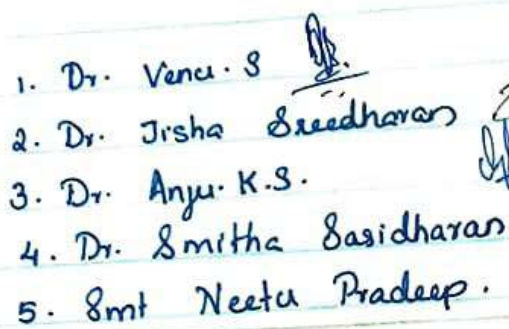 1. Dr. Venu. S
2. Dr. Jisha Sreedharan
3. Dr. Anju. K.S.
4. Dr. Smitha Sasidharan
5. Smt Neetu Pradeep.